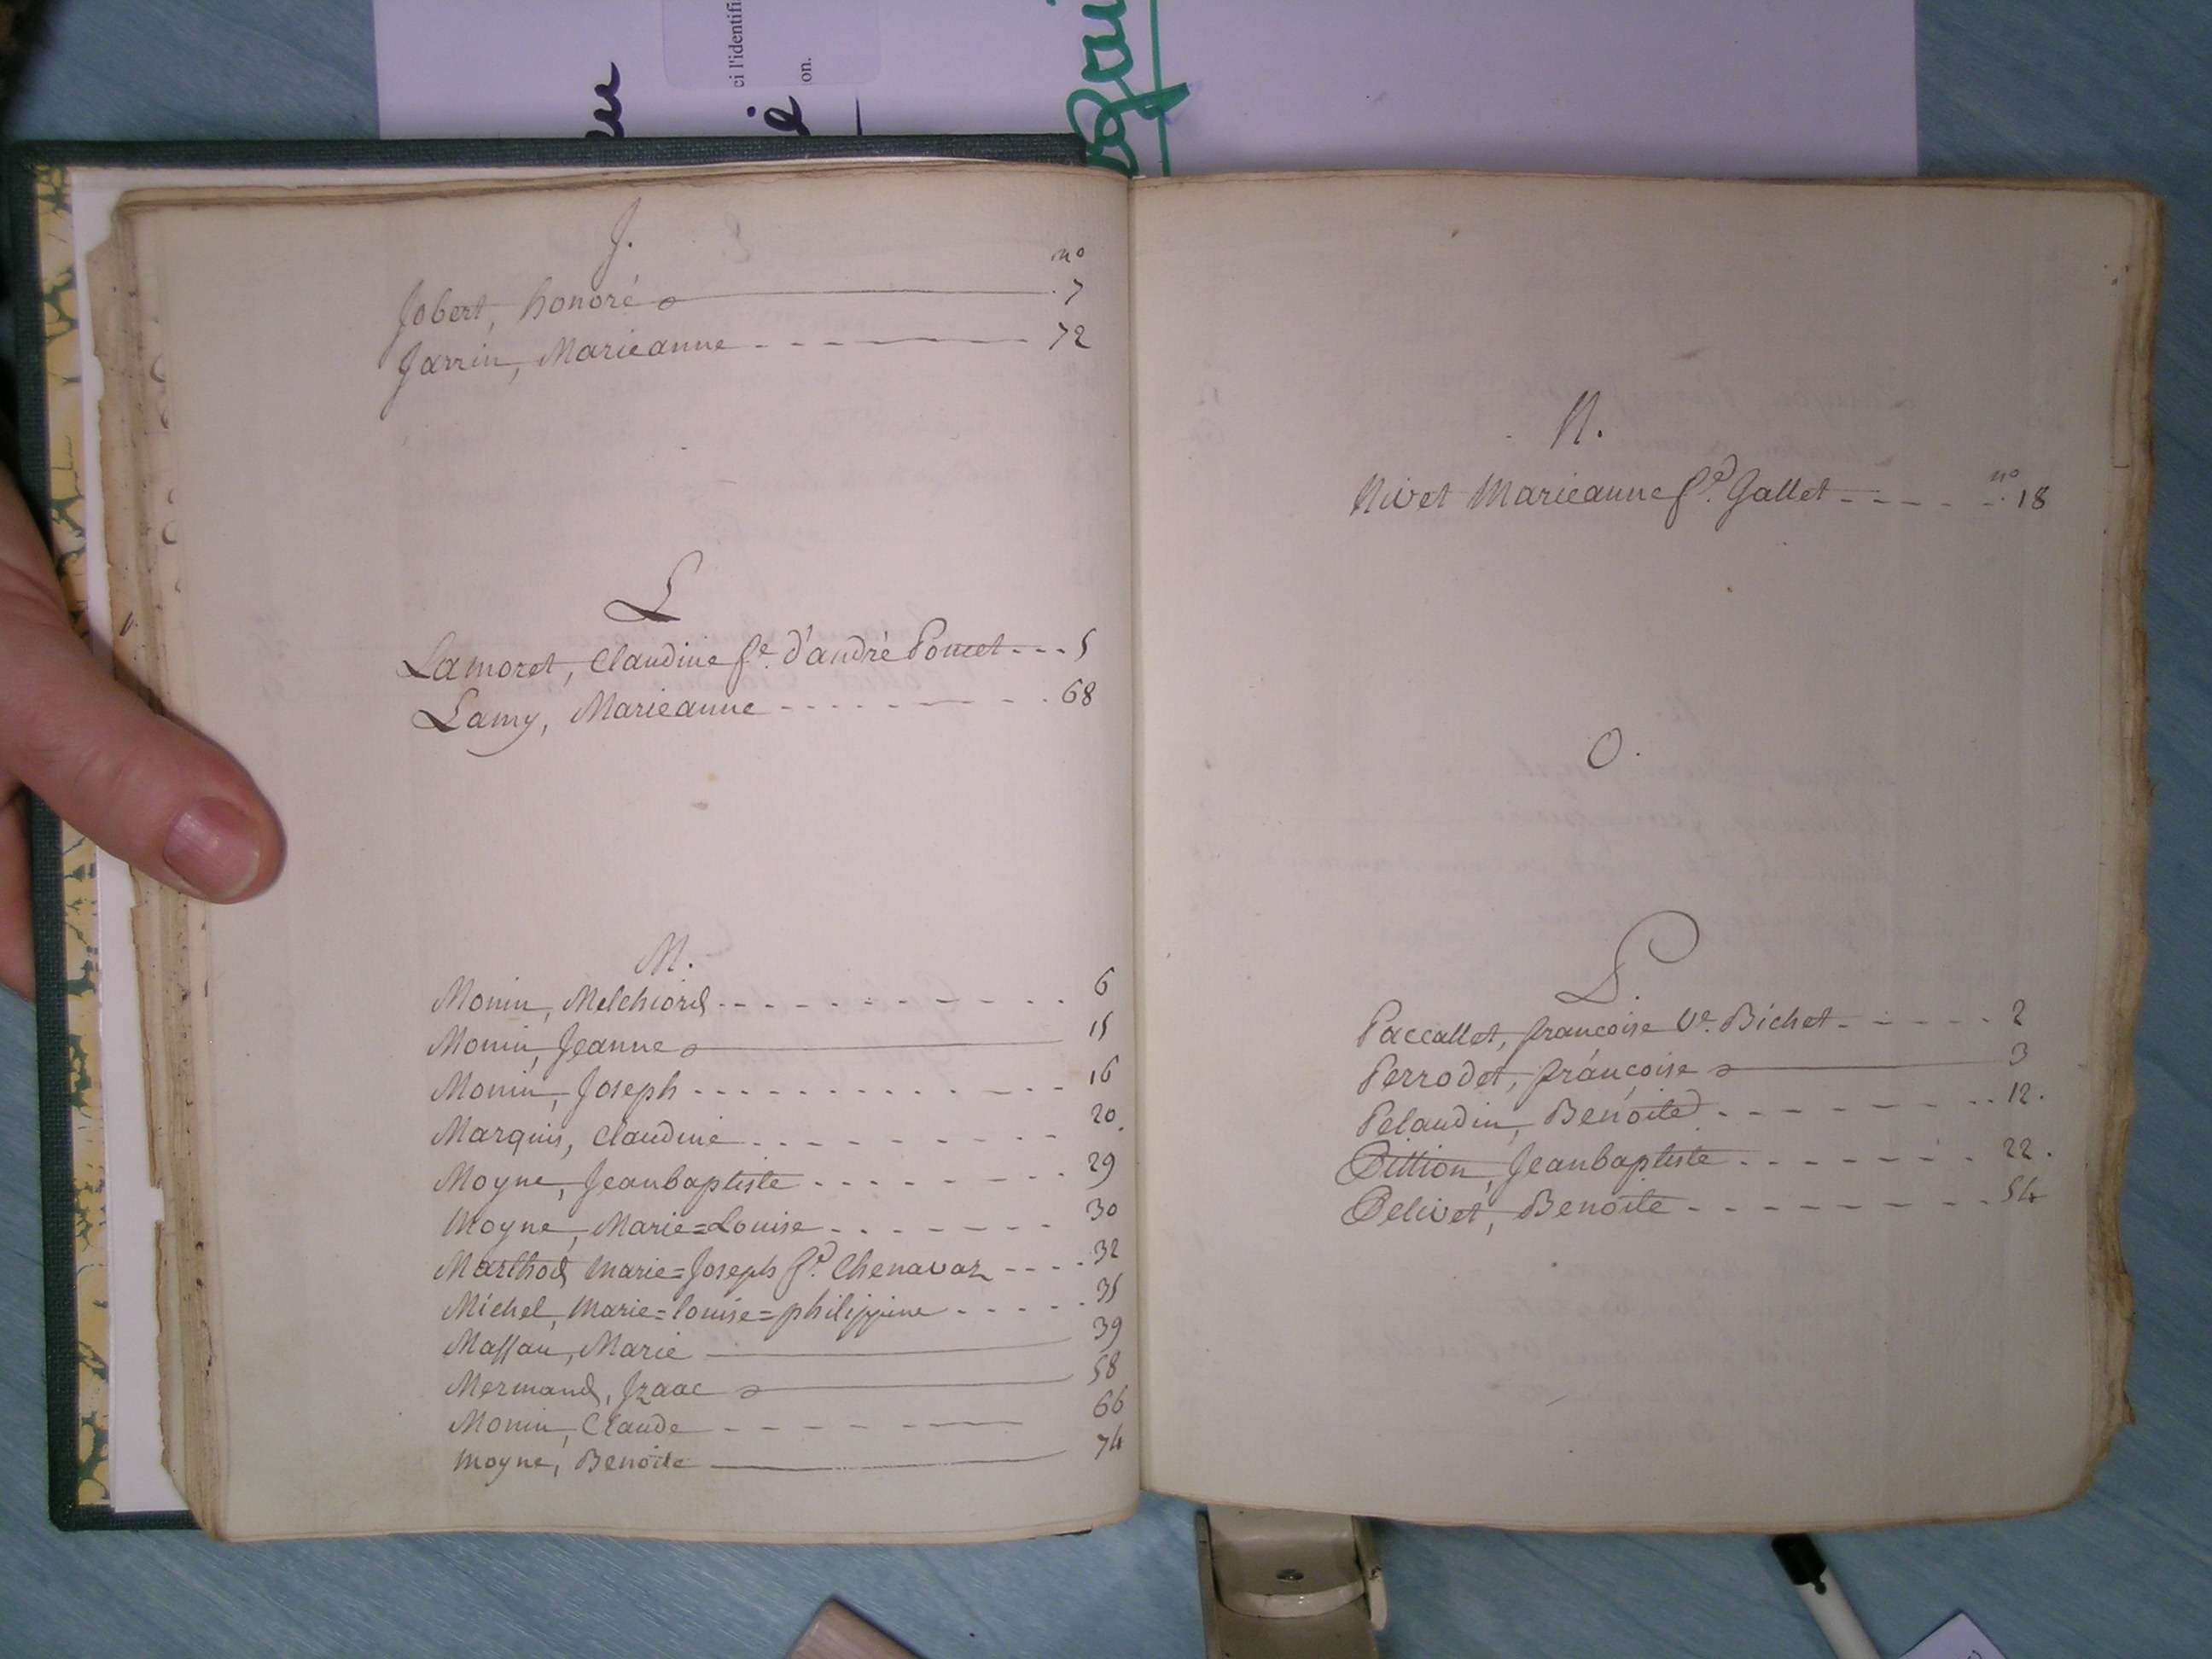 ci l'identifi
on.
J.
no
Jobert, honoré 7
Jarrin, Marieanne - - - - - - - 72
L
Lamoret, Claudine fe. d'andré Poncet - - - 5
Lamy, Marieanne - - - - - - - - - 68
M.
Monin, Melchiord - - - - - - - - - - 6
Monin, Jeanne 15
Monin, Joseph - - - - - - - - - - - 16
Marquis, Claudine - - - - - - - - - 20.
Moyne, Jeanbaptiste - - - - - - - - 29
Moyne, Marie=Louise - - - - - - - 30
Marthod marie=Joseph fe. Chenavaz - - - - 32
Michel, Marie=louise=philippine - - - - - 35
Massau, Marie 39
Mermand, Izaac 58
Monin, Claude - - - - - - - 66
moyne, Benoite 74
N.
no
Nivet Marieanne fe. Gallet - - - - - 18
O.
P.
Paccallet, francoise Ve. Bichet - - - - - 2
Perrodet, françoise 3
Pelaudin, Benoite - - - - - - - - - 12.
Pittion, Jeanbaptiste - - - - - - - - 22.
Pelivet, Benoite - - - - - - - - - 54